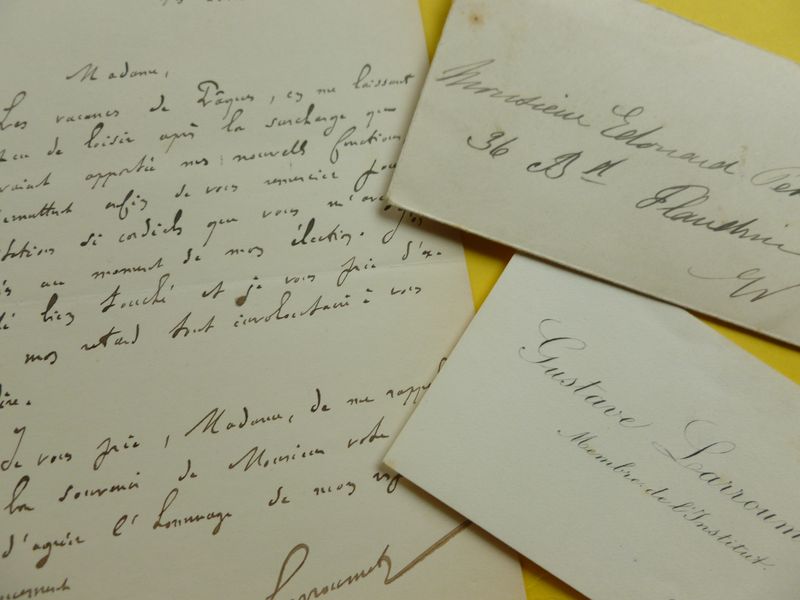 Madame,
Les vacances de Pâques, en me laissant
peu de loisir après la surcharge que
avaient apportée mes nouvelles fonctions
permettent enfin de vous remercier pour
si cordiales que vous m'avez
au moment de mon élection. J'en
bien touché et je vous prie d'ex
mon retard tout involontaire à vous
dire.
Je vous prie, Madame, de me rappeler
au souvenir de Monsieur votre
d'agréer l'hommage de mon
Larroumet
Monsieur Edouard
36 Bd Flandrin
Gustave Larroum
Membre de l'Institut.